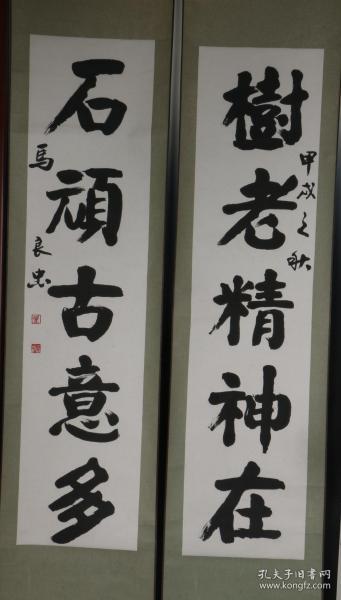 樹老精神在
甲戌之秋
石頑古意多
馬良忠
孔夫子旧书网
www.kongfz.com